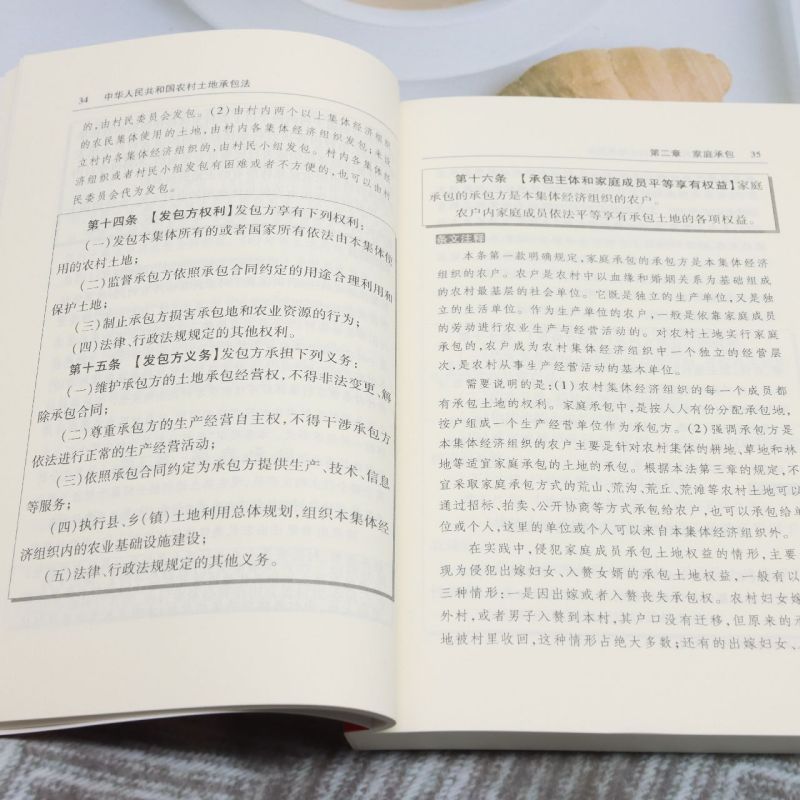 34 中华人民共和国农村土地承包法
的,由村民委员会发包。(2)由村内两个以上集体经济组织
的农民集体使用的土地,由村内各集体经济组织发包;未设
立村内各集体经济组织的,由村民小组发包。村内各集体经
济组织或者村民小组发包有困难或者不方便的,也可以由村
民委员会代为发包。
第十四条 【发包方权利】发包方享有下列权利:
(一)发包本集体所有的或者国家所有依法由本集体使
用的农村土地;
(二)监督承包方依照承包合同约定的用途合理利用和
保护土地;
(三)制止承包方损害承包地和农业资源的行为;
(四)法律、行政法规规定的其他权利。
第十五条 【发包方义务】发包方承担下列义务:
(一)维护承包方的土地承包经营权,不得非法变更、解
除承包合同;
(二)尊重承包方的生产经营自主权,不得干涉承包方
依法进行正常的生产经营活动;
(三)依照承包合同约定为承包方提供生产、技术、信息
等服务;
(四)执行县、乡(镇)土地利用总体规划,组织本集体经
济组织内的农业基础设施建设;
(五)法律、行政法规规定的其他义务。
第二章 家庭承包 35
第十六条 【承包主体和家庭成员平等享有权益】家庭
承包的承包方是本集体经济组织的农户。
农户内家庭成员依法平等享有承包土地的各项权益。
条文注释
本条第一款明确规定,家庭承包的承包方是本集体经济
组织的农户。农户是农村中以血缘和婚姻关系为基础组成
的农村最基层的社会单位。它既是独立的生产单位,又是独
立的生活单位。作为生产单位的农户,一般是依靠家庭成员
的劳动进行农业生产与经营活动的。对农村土地实行家庭
承包的,农户成为农村集体经济组织中一个独立的经营层
次,是农村从事生产经营活动的基本单位。
需要说明的是:(1)农村集体经济组织的每一个成员都
有承包土地的权利。家庭承包中,是按人人有份分配承包地,
按户组成一个生产经营单位作为承包方。(2)强调承包方是
本集体经济组织的农户主要是针对农村集体的耕地、草地和林
地等适宜家庭承包的土地的承包。根据本法第三章的规定,不
宜采取家庭承包方式的荒山、荒沟、荒丘、荒滩等农村土地可以
通过招标、拍卖、公开协商等方式承包给农户,也可以承包给单
位或个人,这里的单位或个人可以来自本集体经济组织外。
在实践中,侵犯家庭成员承包土地权益的情形,主要表
现为侵犯出嫁妇女、入赘女婿的承包土地权益,一般有以
三种情形:一是因出嫁或者入赘丧失承包权。农村妇女嫁
外村,或者男子入赘到本村,其户口没有迁移,但原来的承
地被村里收回,这种情形占绝大多数;还有的出嫁妇女、